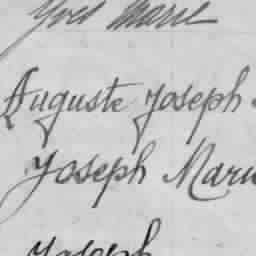 Yves Marie
Auguste Joseph
Joseph Marie
Joseph